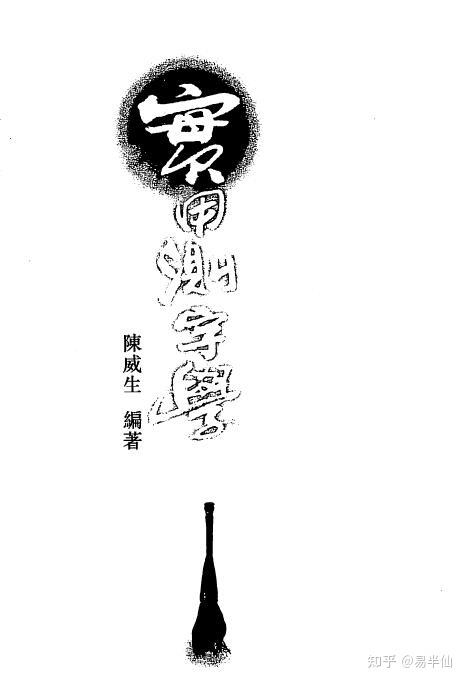 實用測字學
陳威生 編著
知乎 @易半仙